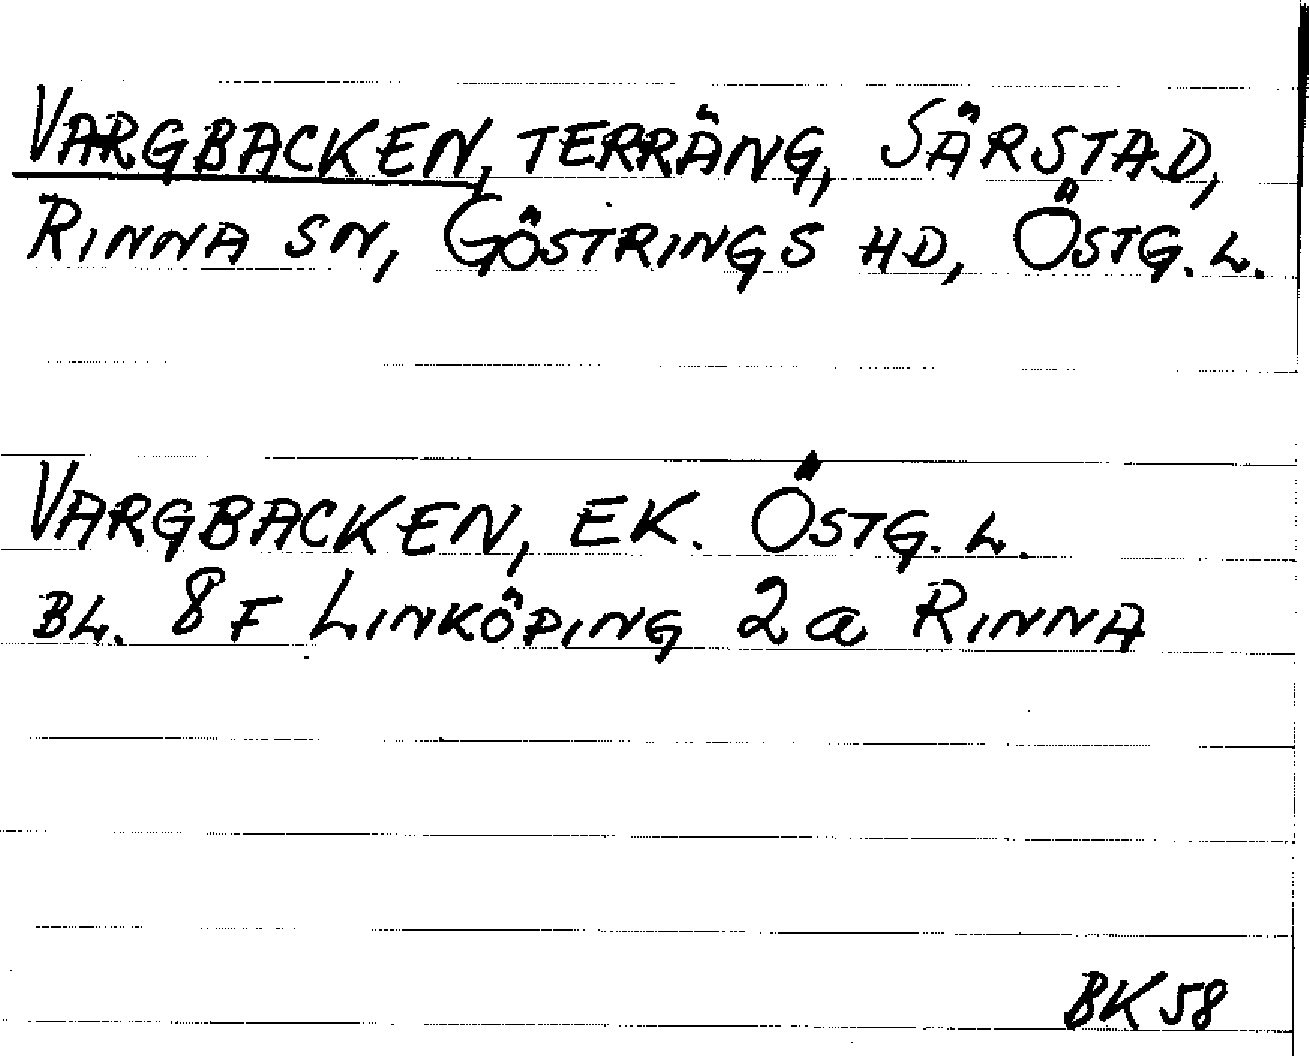 VARGBACKEN, TERRÄNG, SÄRSTAD,
RINNA SN, GÖSTRINGS HD, ÖSTG. L.
VARGBACKEN, EK. ÖSTG. L.
BL. 8F LINKÖPING 2a RINNA
BK 58